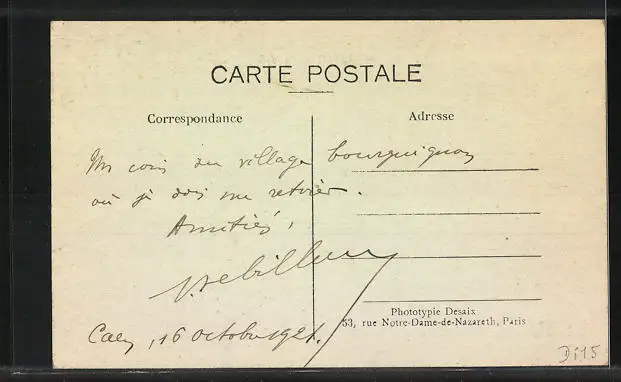 CARTE POSTALE
Correspondance
Adresse
Un coin du village bourguignon
où je dois me retirer.
Amitiés,
Caen, 16 octobre 1921.
Phototypie Desaix
53, rue Notre-Dame-de-Nazareth, Paris
Di15